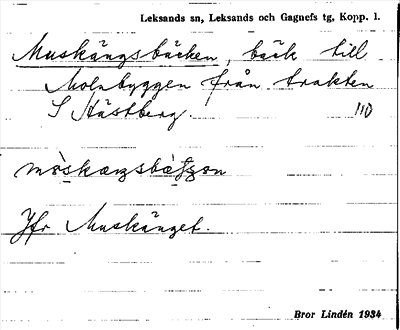 Leksands sn, Leksands och Gagnefs tg, Kopp. l.
Muskängsbäcken, bäck till
Molnbyggen från trakten
S Hästberg. 110
Jfr Muskänget.
Bror Lindén 1934